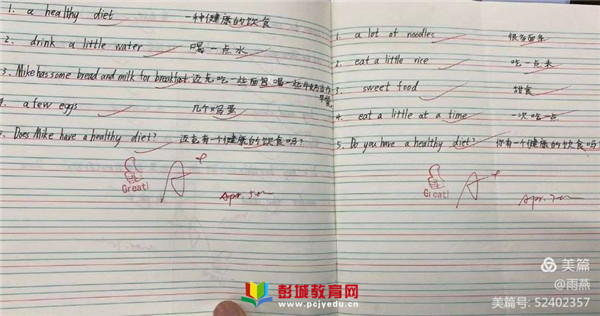 1. a healthy diet 一种健康的饮食
2. drink a little water 喝一点水
3. Mike has some bread and milk for breakfast 迈克吃一些面包喝一些牛奶当作早餐
a few eggs 几个鸡蛋
Does Mike have a healthy diet? 迈克有一个健康的饮食吗?
Great!
A+
Apr. 5th
1. a lot of noodles 很多面条
2. eat a little rice 吃一点米
3. sweet food 甜食
4. eat a little at a time 一次吃一点
5. Do you have a healthy diet? 你有一个健康的饮食吗?
Great!
A+
Apr. 7th
彭城教育网
www.pcjyedu.cn
美篇
@雨燕
美篇号: 52402357